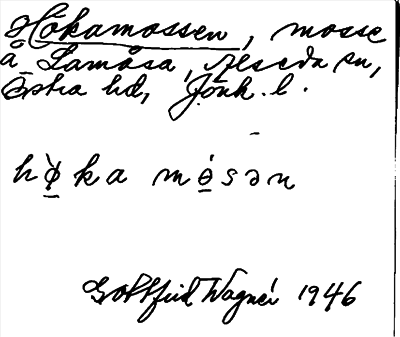 Hökamossen, mosse
å Lamåsa, Reseda sn,
Östra hd, Jönk. l.
hø̀ka mósən
Gottfrid Wagnér 1946